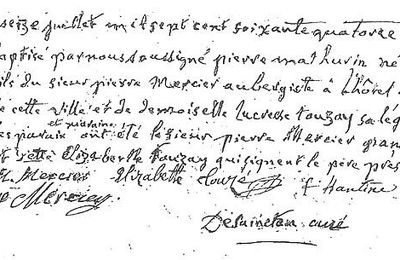 seize juillet mil sept cent soixante quatorze
aptisé par nous soussigné pierre mathurin né
ils du sieur pierre Mercier aubergiste à L'hôtel
e cette ville et de demoiselle Lucresse touzay sa lég
et maraine
es parain ont été le sieur pierre Mercier gran
et Elizabethe touzay qui signent le père prés
Mercier Elizabette touzé f hantine
Mercier
Desainctan curé